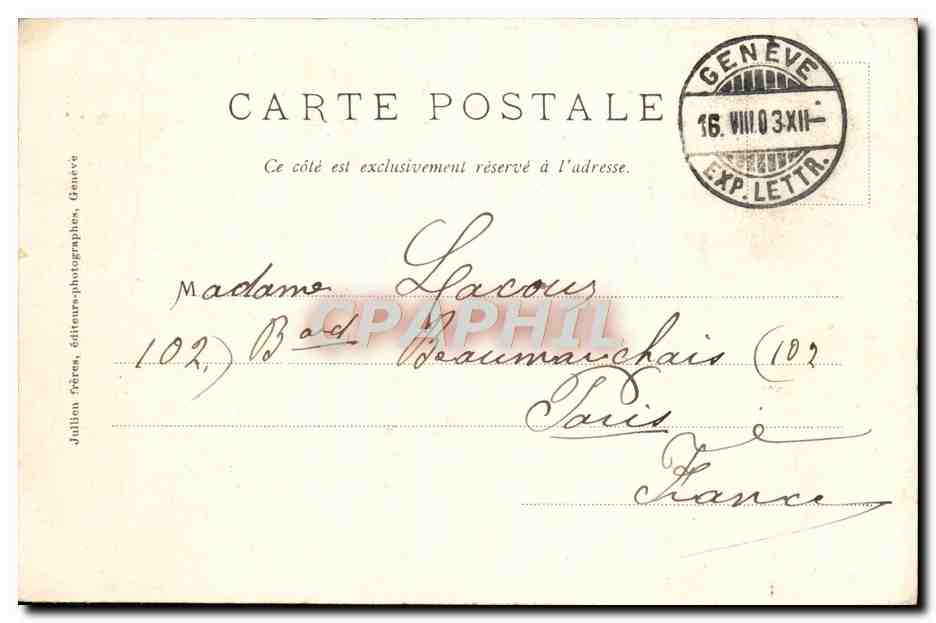 GENÈVE
16. VIII.03-XII-
EXP. LETTR.
CARTE POSTALE
Ce côté est exclusivement réservé à l'adresse.
Jullien frères, éditeurs-photographes, Genève
Madame Lacour
CPAPHIL
102) Bard Beaumarchais (102
Paris
France